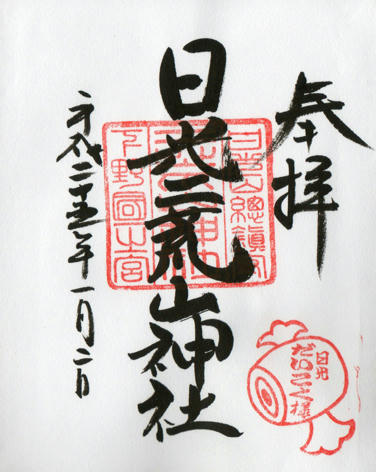 奉拝
日光山總鎮守
日光二荒山神社
下野國一之宮
平成二十五年一月二日
日光
だいこく様